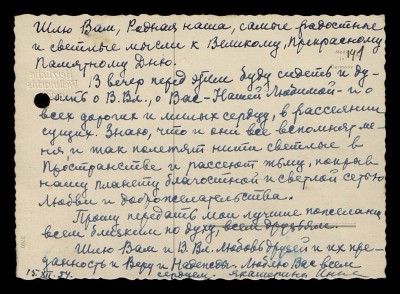 Шлю Вам, Родная наша, самые радостные
и светлые мысли к Великому, Прекрасному
Памятному Дню.
41
В вечер перед этим буду сидеть и ду-
мать о В.Вл., о Вас - Нашей Любимой - и о
всех дорогих и милых сердцу, в рассеянии
сущих. Знаю, что и они все вспомнят ме-
ня и так полетят нити светлые в
пространстве и рассеют тьму, покрыв
нашу планету благостной и светлой сетью
Любви и доброжелательства.
Прошу передать мои лучшие пожелания
всем близким по духу, всем друзьям.
Шлю Вам и В.Вл. Любовь друзей и их пре-
данность и Веру и Надежды. Люблю Вас всем
сердцем.
15. 54.